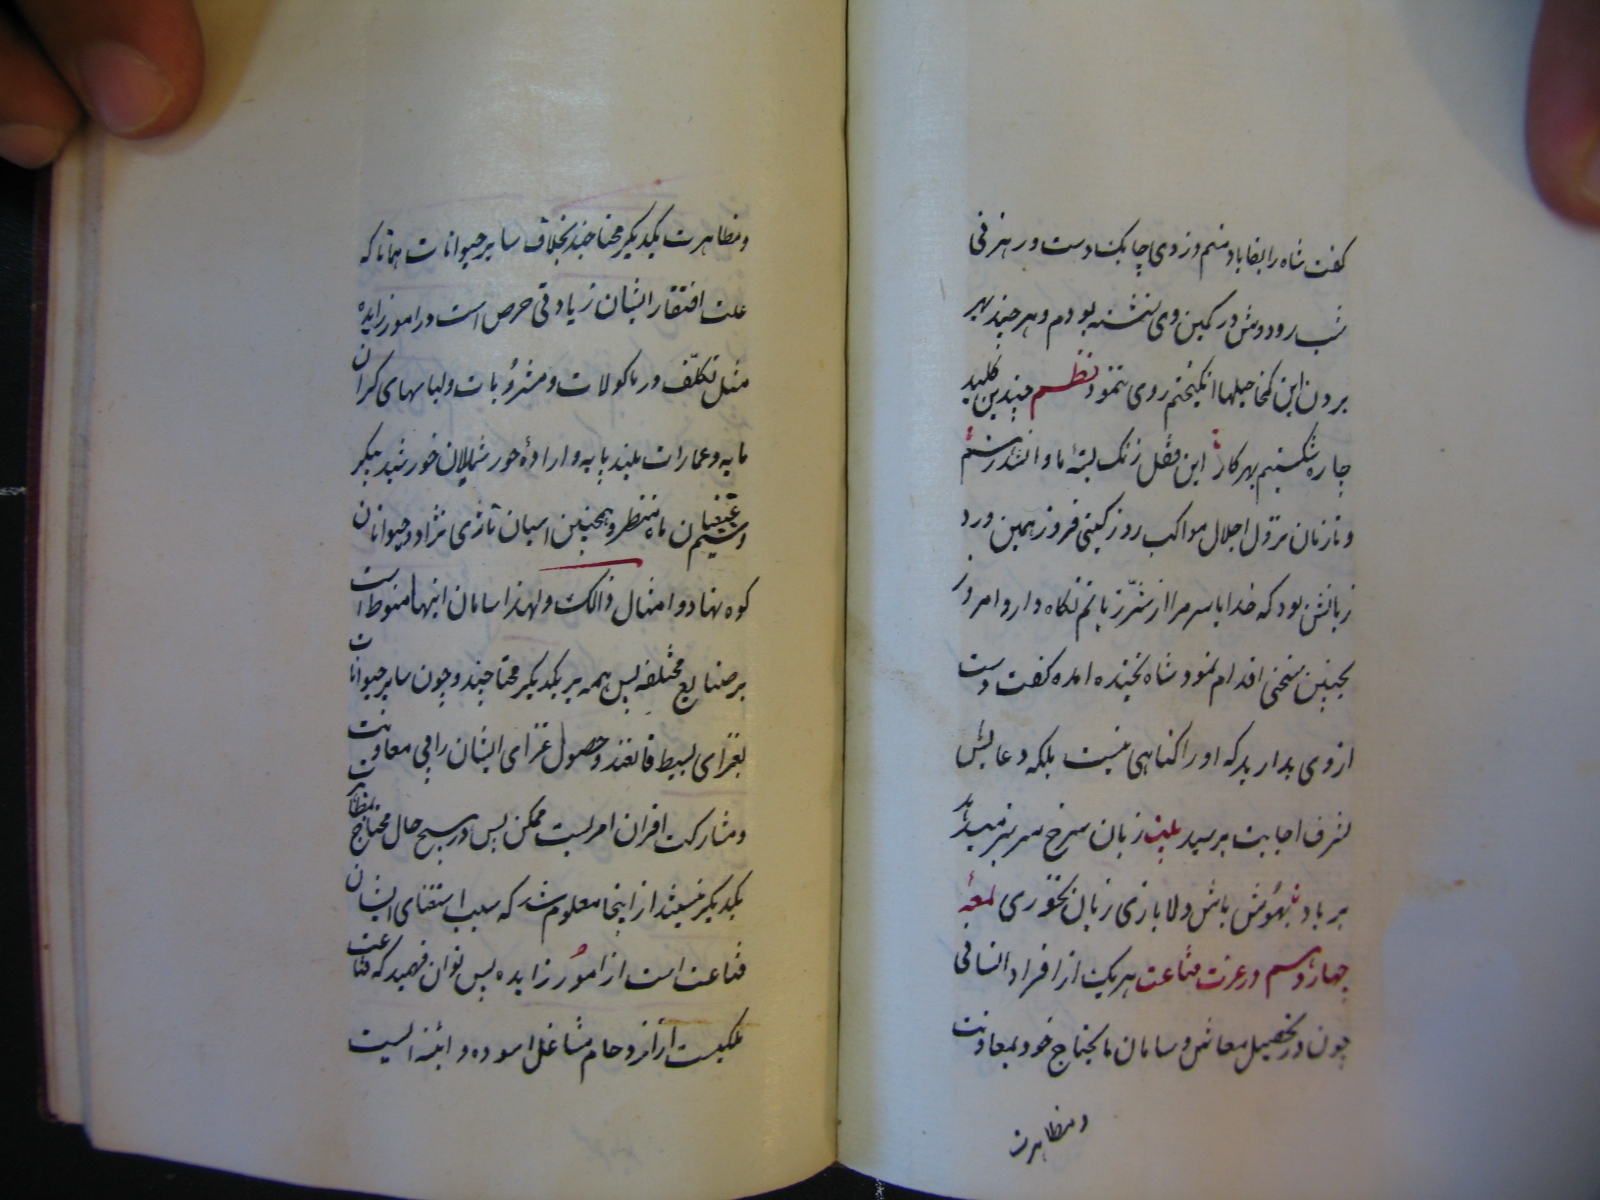 گفت شاه را بقا باد منم دزدی چابک دست و در هر فنی
شب رو دوش در کمین وی نشسته بودم و هر چند بهر
بردن این کمخا حیلها انگیختم روی ننمود نظم چندین کلید
چاره شکستیم بهر کار این قفل زنگ بسته اما وا نشد ز شستم
و تا زمان نزول اجلال مواکب روز گیتی فروز همین ورد
زبانش بود که خدایا سر مرا از شر زبانم نگاه دار و امروز
بچنین سخنی اقدام نمود شاه بخنده آمده گفت دست
از وی بدارید که او را گناهی نیست بلکه دعایش
بشرف اجابت برسید بیت زبان سرخ سر سبز میدهد
بر باد بهوش باش ولا بازی زبان نخوری لمعهٔ
چهاردهم در عزت قناعت هر یک از افراد انسانی
چون در تحصیل معاش و سامان مایحتاج خود بمعاونت
و مظاهرت
و مظاهرت یکدیگر محتاجند بخلاف سایر حیوانات همانا که
علت افتقار ایشان زیادتی حرص است در امور زایده
مثل تکلّف در ماکولات و مشروُبات و لباسهای گران
مایه و عمارات بلند پایه و ارادهٔ حور شمایلان خورشید پیکر
و سیم غبغبان ماه منظر و همچنین اسبان تازی نژاد و حیوانان
کوه نهاد و امثال ذالک و لهذا سامان اینها منوط است
بر صنایع مختلفه پس همه بر یکدیگر محتاجند و چون سایر حیوانات
بغذای بسیط قانعند و حصول غذای ایشان را بی معاونت
و مشارکت اقران امریست ممکن پس در هیچ حال محتاج بمظاهرت
یکدیگر نیستند از اینجا معلوم شد که سبب استغنای ایشان
قناعت است از امور زایده پس توان فهمید که قناعت
ملکیست از ازدحام مشاغل آسوده و آئینه ایست